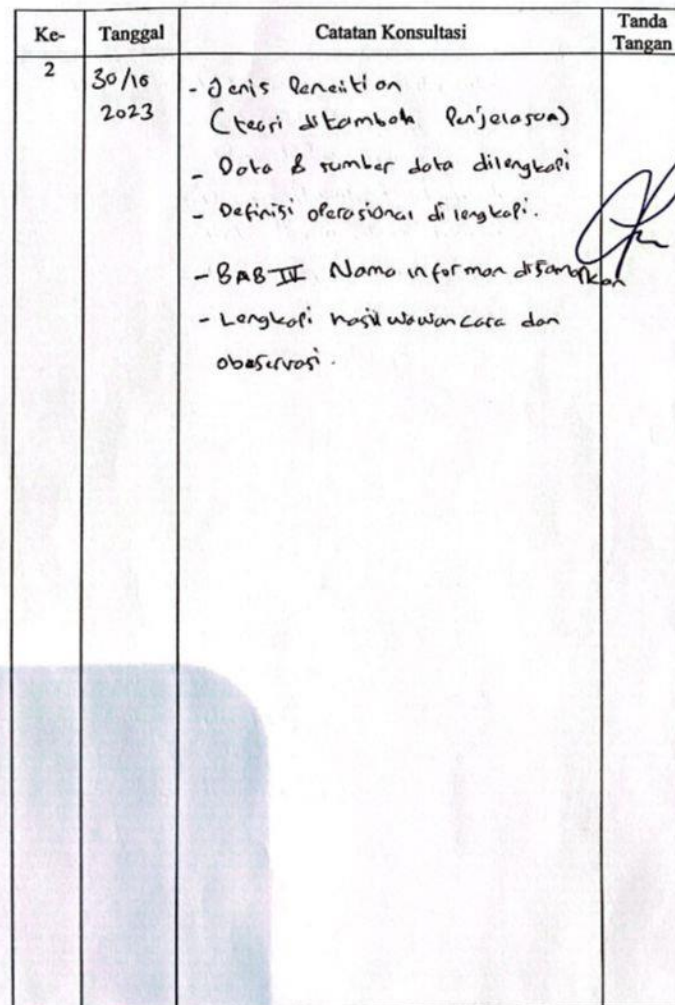 Ke- Tanggal Catatan Konsultasi Tanda Tangan
2 30/10 2023
- Jenis Peneitian
(teori ditambah Penjelasan)
- Data & sumber data dilengkapi
- Definisi operasional dilengkapi.
- BAB IV Nama informan disamarkan
- Lengkapi hasil wawancara dan
obeservasi.